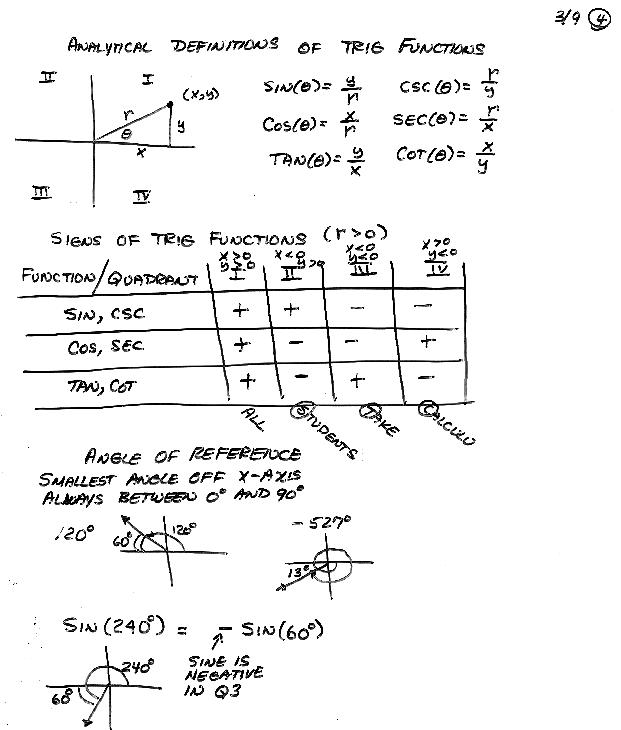 3/9 4
ANALYTICAL DEFINITIONS OF TRIG FUNCTIONS
II I
(x,y)
r y
θ
x
III IV
SIN(θ)= y/r CSC(θ)= r/y
COS(θ)= x/r SEC(θ)= r/x
TAN(θ)= y/x COT(θ)= x/y
SIGNS OF TRIG FUNCTIONS (r>0)
x>0 x<0 x<0 x>0
y>0 y>0 y<0 y<0
FUNCTION/QUADRANT I II III IV
SIN, CSC + + - -
COS, SEC + - - +
TAN, COT + - + -
ALL STUDENTS TAKE CALCULU
ANGLE OF REFERENCE
SMALLEST ANGLE OFF X-AXIS
ALWAYS BETWEEN 0° AND 90°
120° 60° 120°
-527°
13°
SIN(240°) = - SIN(60°)
SINE IS
NEGATIVE
IN Q3
240°
60°